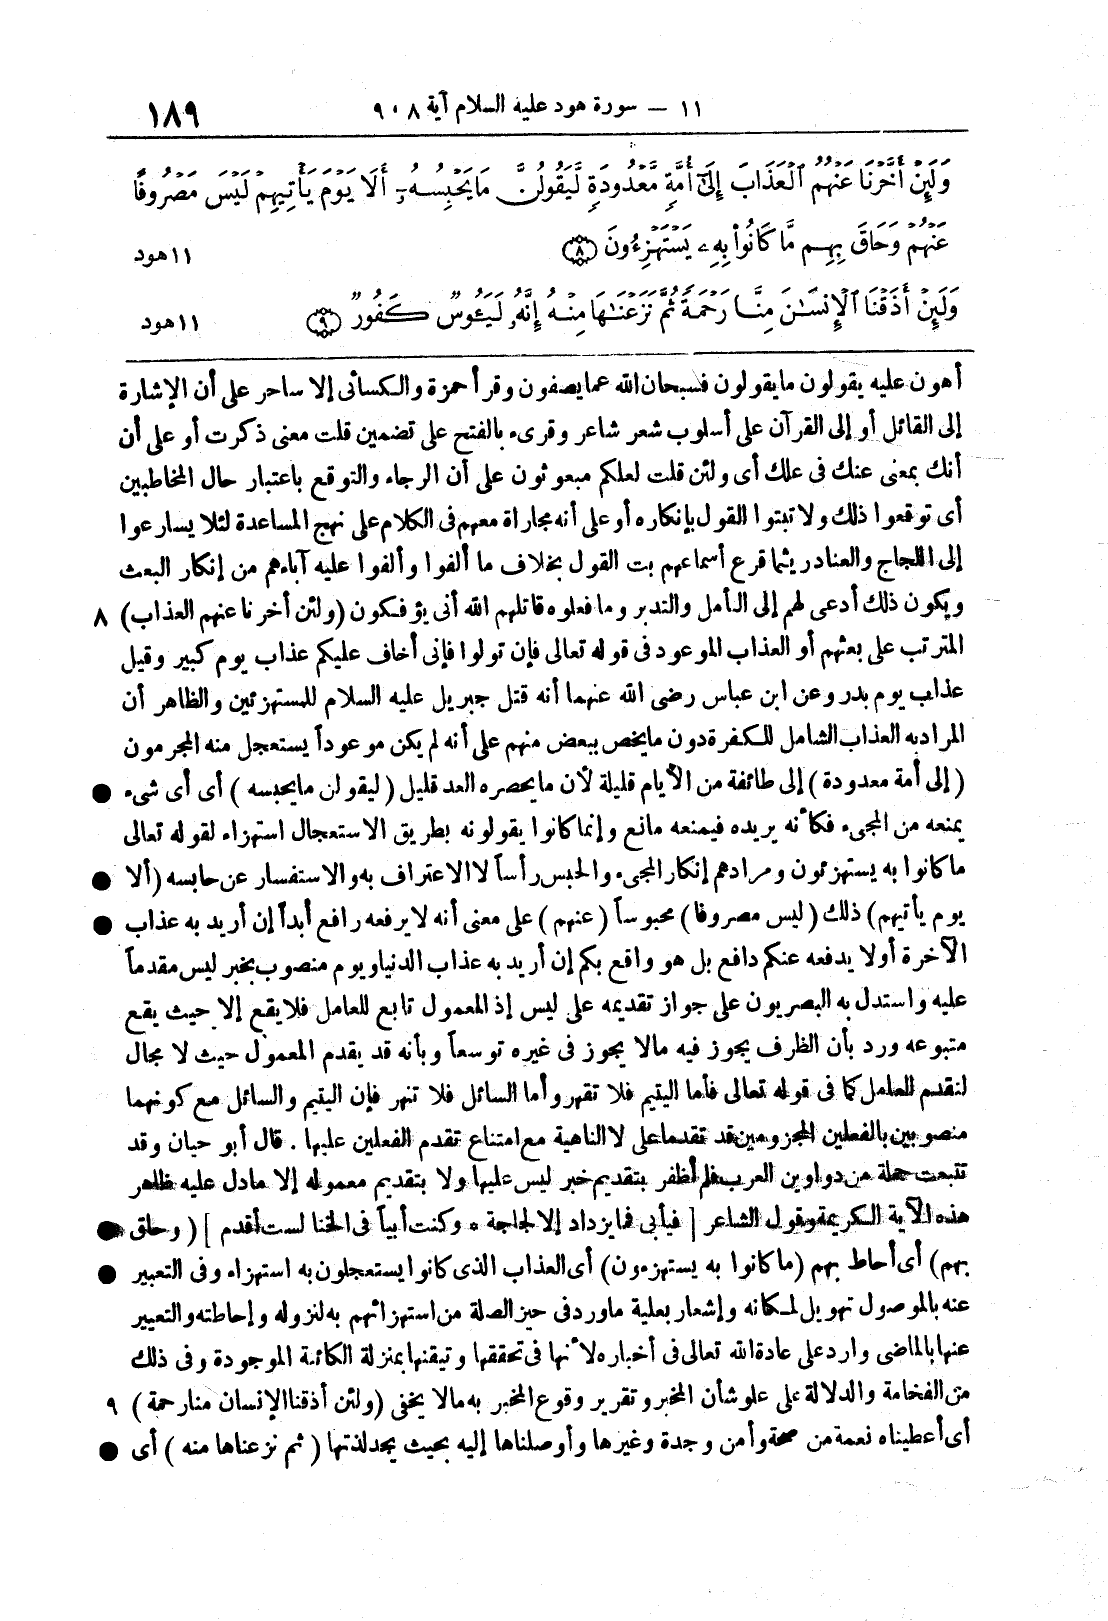 ١١ — سورة هود عليه السلام آية ٩٠٨ ١٨٩
وَلَئِنْ أَخَّرْنَا عَنْهُمُ ٱلْعَذَابَ إِلَىٰٓ أُمَّةٍ مَّعْدُودَةٍ لَّيَقُولُنَّ مَا يَحْبِسُهُۥٓ أَلَا يَوْمَ يَأْتِيهِمْ لَيْسَ مَصْرُوفًا
عَنْهُمْ وَحَاقَ بِهِم مَّا كَانُوا۟ بِهِۦ يَسْتَهْزِءُونَ ﴿٨﴾ ١١ هود
وَلَئِنْ أَذَقْنَا ٱلْإِنسَـٰنَ مِنَّا رَحْمَةً ثُمَّ نَزَعْنَـٰهَا مِنْهُ إِنَّهُۥ لَيَـُٔوسٌ كَفُورٌ ﴿٩﴾ ١١ هود
أهون عليه يقولون ما يقولون فسبحان الله عما يصفون وقرأ حمزة والكسائى إلا ساحر على أن الإشارة
إلى القائل أو إلى القرآن على أسلوب شعر شاعر وقرىء بالفتح على تضمين قلت معنى ذكرت أو على أن
أنك بمعنى عنك فى علك أى ولئن قلت لعلكم مبعوثون على أن الرجاء والتوقع باعتبار حال المخاطبين
أى توقعوا ذلك ولا تبتوا القول بإنكاره أو على أنه مجاراة معهم فى الكلام على نهج المساعدة لئلا يسارعوا
إلى اللجاج والعناد ريثما قرع أسماعهم بت القول بخلاف ما ألفوا وألفوا عليه آباءهم من إنكار البعث
ويكون ذلك أدعى لهم إلى التأمل والتدبر وما فعلوه قاتلهم الله أنى يؤفكون (ولئن أخرنا عنهم العذاب) ٨
المترتب على بعثهم أو العذاب الموعود فى قوله تعالى فإن تولوا فإنى أخاف عليكم عذاب يوم كبير وقيل
عذاب يوم بدر وعن ابن عباس رضى الله عنهما أنه قتل جبريل عليه السلام للمستهزئين والظاهر أن
المراد به العذاب الشامل للكفرة دون ما يخص ببعض منهم على أنه لم يكن موعوداً يستعجل منه المجرمون
(إلى أمة معدودة) إلى طائفة من الأيام قليلة لأن ما يحصره العد قليل (ليقولن ما يحبسه) أى أى شىء ●
يمنعه من المجىء فكأنه يريده فيمنعه مانع وإنما كانوا يقولونه بطريق الاستعجال استهزاء لقوله تعالى
ما كانوا به يستهزئون ومرادهم إنكار المجىء والحبس رأساً لا الاعتراف به والاستفسار عن حابسه (ألا ●
يوم يأتيهم) ذلك (ليس مصروفا) محبوساً (عنهم) على معنى أنه لا يرفعه رافع أبداً إن أريد به عذاب ●
الآخرة أو لا يدفعه عنكم دافع بل هو واقع بكم إن أريد به عذاب الدنيا ويوم منصوب بخبر ليس مقدماً
عليه واستدل به البصريون على جواز تقديمه على ليس إذ المعمول تابع للعامل فلا يقع إلا حيث يقع
متبوعه ورد بأن الظرف يجوز فيه مالا يجوز فى غيره توسعاً وبأنه قد يقدم المعمول حيث لا مجال
لتقدم العامل كما فى قوله تعالى فأما اليتيم فلا تقهر وأما السائل فلا تنهر فإن اليتيم والسائل مع كونهما
منصوبين بالفعلين المجزومين قد تقدما على لا الناهية مع امتناع تقدم الفعلين عليها . قال أبو حيان وقد
تتبعت جملة من دواوين العرب فلم أظفر بتقديم خبر ليس عليها ولا بتقديم معموله إلا ما دل عليه ظاهر
هذه الآية الكريمة وقول الشاعر [ فيأبى فما يزداد إلا لجاجة * وكنت أبياً فى الخنا لست أقدم ] ( وحاق ●
بهم) أى أحاط بهم (ما كانوا به يستهزءون) أى العذاب الذى كانوا يستعجلون به استهزاء وفى التعبير ●
عنه بالموصول تهويل لمكانه وإشعار بعلية ما ورد فى حيز الصلة من استهزائهم به لنزوله وإحاطته والتعبير
عنها بالماضى وارد على عادة الله تعالى فى أخباره لأنها فى تحققها وتيقنها بمنزلة الكائنة الموجودة وفى ذلك
من الفخامة والدلالة على علو شأن المخبر وتقرير وقوع المخبر به مالا يخفى (ولئن أذقنا الإنسان منا رحمة) ٩
أى أعطيناه نعمة من صحة وأمن وجدة وغيرها وأوصلناها إليه بحيث يجد لذتها (ثم نزعناها منه) أى ●